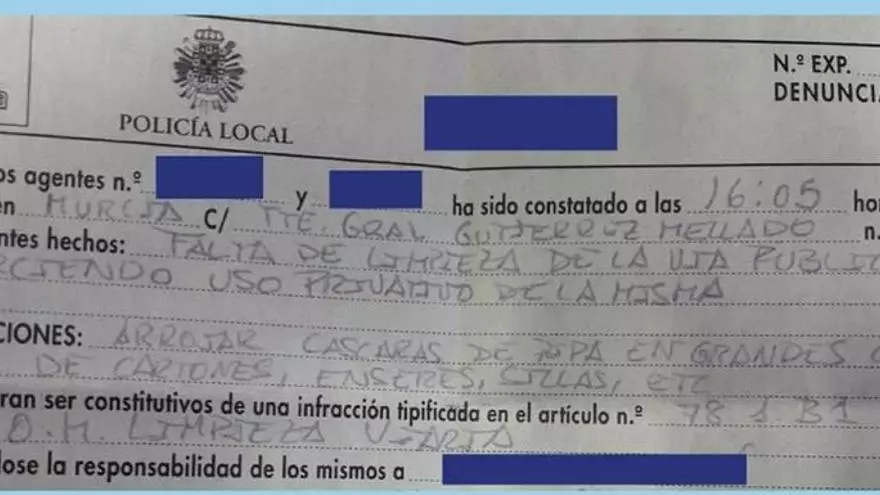 N.º EXP.
DENUNCIA
POLICÍA LOCAL
os agentes n.º y ha sido constatado a las 16:05 ho
en MURCIA C/ TTE. GRAL GUTIERREZ MELLADO n.
ntes hechos: FALTA DE LIMPIEZA DE LA VIA PUBLIC
RCIENDO USO PRIVATIVO DE LA MISMA
CIONES: ARROJAR CASCARAS DE PIPA EN GRANDES C
DE CARTONES, ENSERES, SILLAS, ETC
ran ser constitutivos de una infracción tipificada en el artículo n.º 78 1. B1
O.M. LIMPIEZA VIARIA
dose la responsabilidad de los mismos a